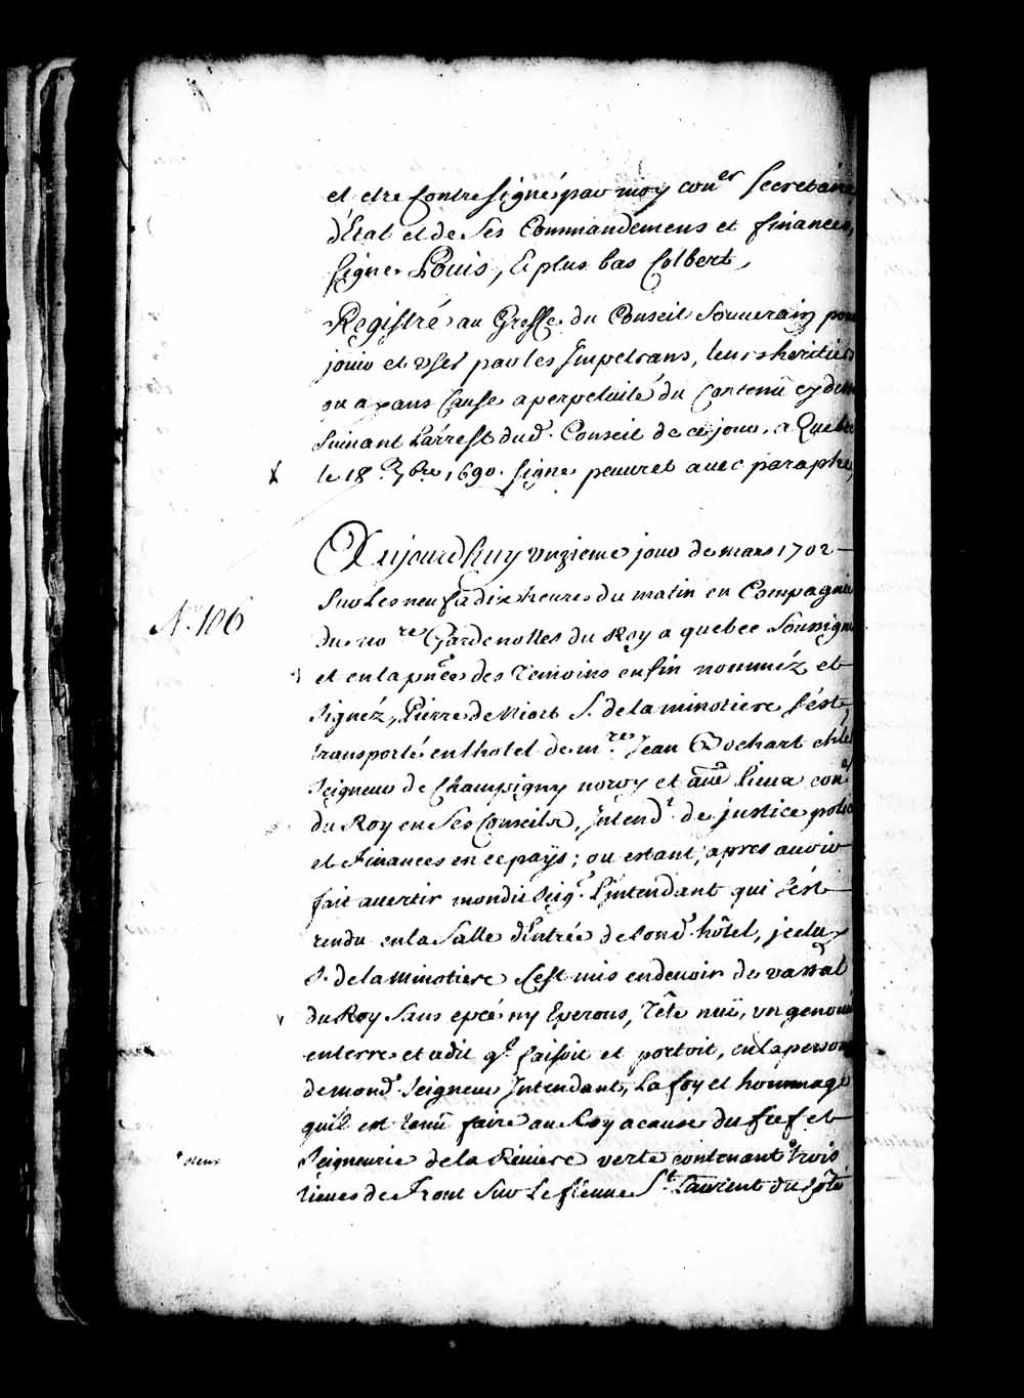 et etre Contresigné par moy con.er Secretaire
d'Etat et de Ses Commandemens et finances,
Signé Louis, Et plus bas Colbert,
Registré au Greffe du Conseil Souuerain pour
jouir et vser par les Jmpetrans, leurs heritiers
ou ayans Cause a perpetuité du Contenu cy dessus
Suiuant L'arrest dud. Conseil de ce jour, a Quebec
le 18.e 7bre 1690. Signé peuuret auec paraphe,
Aujourd'huy vnzieme jour de mars 1702
N.º 106
Sur Les neuf a dix heures du matin en Compagnie
du no.re Gardenottes du Roy a quebec Soussigné
et en la pnce des Temoins enfin nomméz et
Signéz, Pierre de Niort S. de la minotiere s'est
transporté en lhotel de m.re Jean Bochart cheler
Seigneur de Champigny noroy et autres lieux con.er
du Roy en Ses Conseils, Jntend.t de justice police
et Finances en ce païs; ou estant, apres auoir
fait auertir mondit Seig.r L'Jntendant qui s'est
rendu en la Salle d'Entrée de Sond. hôtel, jceluy
S. de la Minotiere s'est mis en deuoir de vassal
du Roy Sans epée ny Eperons, Tête nuë, vn genouil
en terre et a dit q.l faisoit et portoit, en la personne
de mond. Seigneur Jntendant, La foy et hommage
qu'il est tenu faire au Roy a cause du fief et
Seigneurie de la Riuiere verte contenant trois
lieues de Front Sur Le fleuue S.t Laurent du Coté